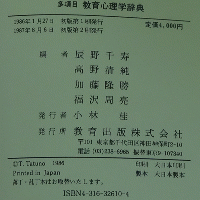 多項目 教育心理学辞典
1986年11月27日 初版第1刷発行
1987年6月6日 初版第2刷発行
定価4,000円
編者 辰野千寿
高野清純
加藤隆勝
福沢周亮
発行者 小林佳
発行所 教育出版株式会社
101 東京都千代田区神田神保町2-10
電話 03-238-6965 振替東京9-107340
©T. Tatuno 1986
印刷 大日本印刷
Printed in Japan
製本 大日本製本
落丁・乱丁本はお取替いたします。
ISBN4-316-32610-4